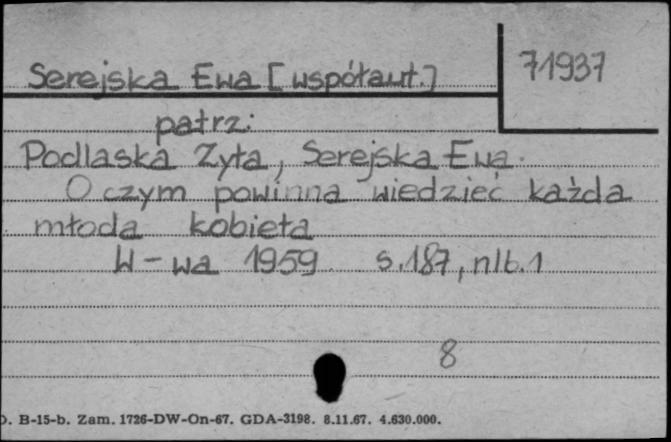 Serejska Ewa [współaut.]
71937
patrz:
Podlaska Zyta, Serejska Ewa.
O czym powinna wiedzieć każda
młoda kobieta
W-wa 1959 s.187, nlb.1
8
D. B-15-b. Zam. 1726-DW-On-67. GDA-3198. 8.11.67. 4.630.000.